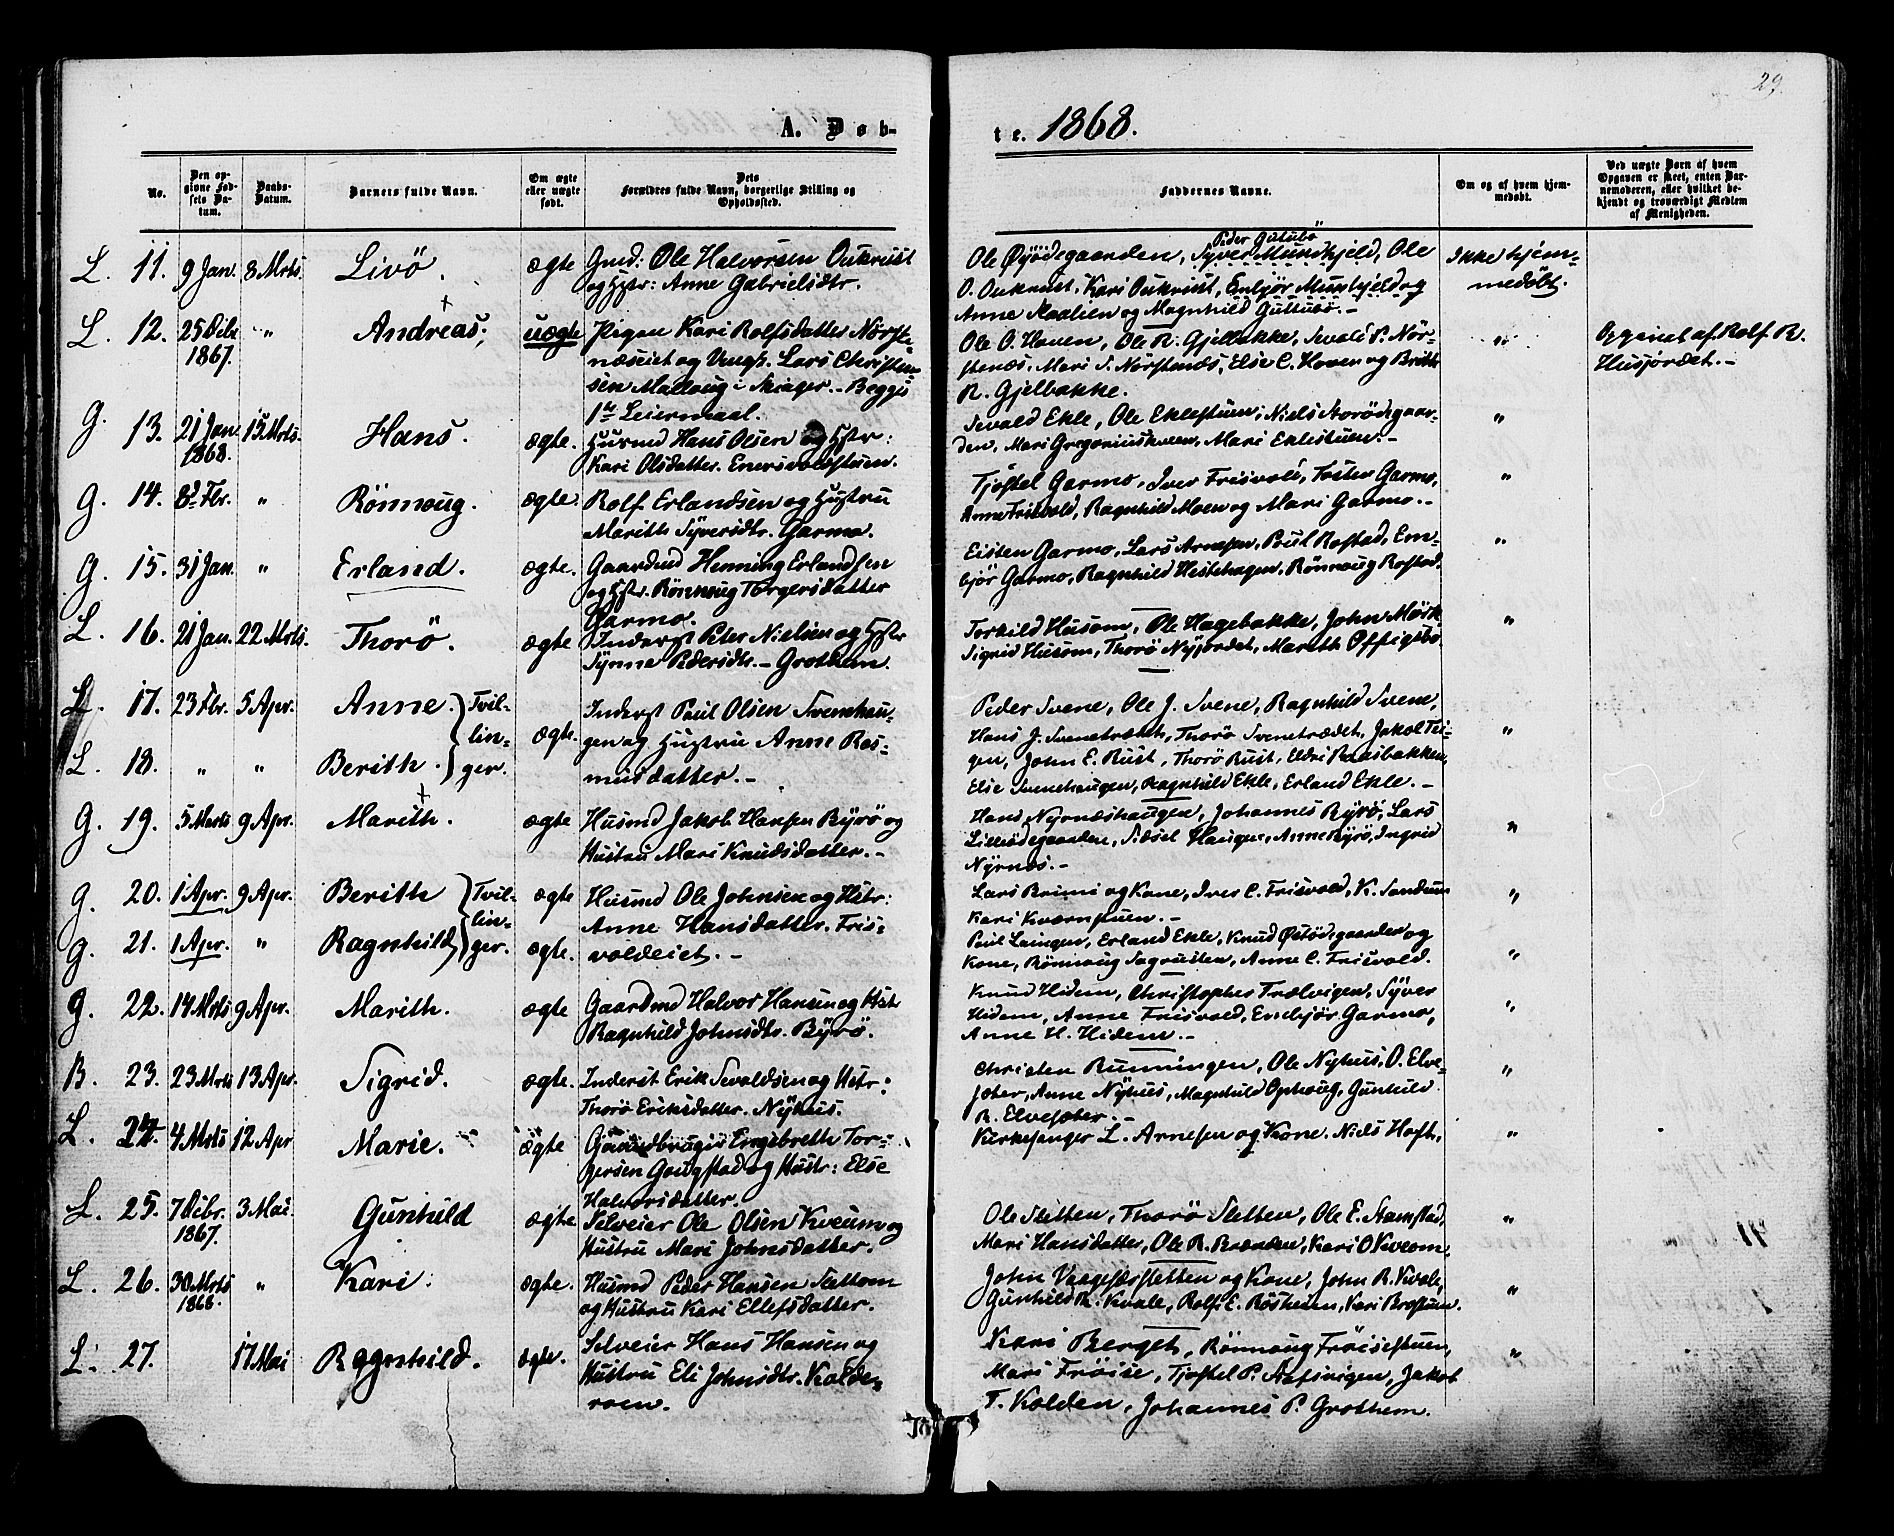 29.
A. Døb-
te. 1868.
No.
Den op-
givne Fød-
sels Da-
tum.
Daabs-
Datum.
Barnets fulde Navn.
Om ægte
eller uægte
født.
Dets
Forældres fulde Navn, borgerlige Stilling og
Opholdssted.
Faddernes Navne.
Om og af hvem hjem-
medøbt.
Ved uægte Børn af hvem
Opgaven er skeet, enten Bar-
nemoderen, eller hvilket be-
kjendt og troværdigt Medlem
af Menigheden.
L. 11. 9 Jan. 8 Mrts. Livö. ægte
Gmd: Ole Halvorsen Oukrust
og Hstr: Anne Gabrielsdtr.
Peder Gutubö
Ole Øyödegaarden, Syver Munkjeld, Ole
O. Oukrust, Kari Oukrust, Embjör Munkjeld og
Anne Aaalien og Magnhild Guttubö.-
Ikke hjem-
medøbt.
L. 12. 25 Debr 1867. " Andreas; uægte
Pigen Kari Rolfsdatter Nörste-
næseiet og Ungk. Lars Christen-
sen Mallaug i Skiager.- Begges
1ste Leiermaal.
Ole O. Hoven, Ole R. Gjelbakke, Sevald P. Nör-
stenæs, Mari S. Nörstenæs, Else C. Hoven og Brith
R. Gjelbakke.
"
Opgivet af Rolf R.
Husjordet.-
G. 13. 21 Jan. 1868. 15 Mrts. Hans. ægte.
Husmd Hans Olsen og Hstr:
Kari Olsdatter.
Sevald Ekle, Ole Eklestuen, Niels Storödegaar-
den, Mari Gregoriuskveen, Mari Eklestuen.-
"
G. 14. 8de Fbr. " Rönnaug. ægte.
Rolf Erlandsen og Hustru
Marith Syversdtr. Garmo.
Tjostel Garmo, Iver Frisvold, Tosten Garmo,
Anne Frisvold, Ragnhild Moen og Mari Garmo.-
"
G. 15. 31 Jan. " Erland. ægte.
Gaardmd Henning Erlandsen
og Hstr. Rönnaug Torgersdatter
Garmo.
Eisten Garmo, Lars Arnesen, Poul Rostad, Em-
björ Garmo, Ragnhild Hestehagen, Rönnaug Rostad.
"
L. 16. 21 Jan. 22 Mrts. Thorö. ægte
Inderst Peter Nielsen og Hstr
Synne Pedersdtr.- Grothem.
Torkild Husom, Ole Hagebakke, John Mörk
Sigrid Husom, Thorö Nyjordet, Marith Offigsbo.
"
L. 17. 23 Fbr. 5 Apr. Anne. Tvil-
lin-
ger. ægte.
L. 18. " " Berith.
Inderst Poul Olsen Svenhau-
gen og Hustru Anne Ras-
musdatter.-
Peder Svene, Ole J. Svene, Ragnhild Svene,
Hans J. Svenetrædet, Thorö Svenetrædet, Jakob Tei-
gen, John E. Rust, Thorö Rust, Eldri Raasbakken,
Else Svenehaugen, Ragnhild Ekle, Erland Ekle.-
"
G. 19. 5 Marts 9 Apr. Marith. ægte
Husmd Jakob Hansen Byrö og
Hustru Mari Knudsdatter.-
Hans Nyrnæshaugen, Johannes Byrö, Lars
Lilleödegaarden, Sidsel Haugen, Anne Byrö, Ingrid
Nyrnæs.-
"
G. 20. 1 Apr. 9 Apr. Berith Tvil-
lin-
ger. ægte
G. 21. 1 Apr. " Ragnhild ægte.
Husmd Ole Johnsen og Hstr:
Anne Hansdatter. Fris-
voldeiet.-
Lars Brimi og Kone, Iver C. Frisvold, K. Sandum
Kari Kvernstuen.-
"
Poul Leirgen, Erland Ekle, Knud Östödegaarden og
Kone, Rönnaug Sagrusten, Anne C. Frisvold.
"
G. 22. 14 Mrts 9 Apr. Marith. ægte
Gaardmd Halvor Hansen og Hstr
Ragnhild Johnsdtr. Byrö.
Knud Hidem, Christopher Trælvigen, Syver
Hidem, Anne Frisvold, Embjör Garmo,
Anne H. Hidem.-
"
B. 23. 23 Mrts 13 Apr. Sigrid. ægte.
Inderst Erik Sevaldsen og Hstr:
Thorö Eriksdatter. Nyhus.
Christen Runningen, Ole Nyhus, O. Elve-
sæter, Anne Nyhus, Magnhild Ophoug, Gunhild
R. Elvesæter.-
"
L. 24. 4 Mrts 12 Apr Marie. ægte
Gaardbruger Engebreth Tor-
gersen Gaugstad og Hustr: Else
Halvorsdatter.
Kirkesanger L. Arnesen og Kone. Niels Hoft.
"
L. 25. 7 Debr. 1867. 3 Mai. Gunhild ægte
Selveier Ole Olsen Kveum og
Hustru Mari Johnsdatter.
Ole Sletten, Thorö Sletten, Ole E. Stamstad,
Mari Hansdatter, Ole R. Brænden, Kari O Kveom.
"
L. 26. 30 Mrts 1868 " Kari. ægte.
Husmd Peder Hansen Slettom
og Hustru Kari Ellefsdatter.
John Vaagesærsletten og Kone, John R. Kvale,
Gunhild R. Kvale, Rolf E. Rösheim, Kari Brostuen.
"
L. 27. 17 Mai Ragnhild. ægte.
Selveier Hans Hansen og
Hustru Eli Johnsdtr. Kolde-
roen.
Kari Berget, Rönnaug Fröisestuen,
Mari Fröise, Tjostel P. Aafsvigen, Jakob
T. Kolden, Johannes P. Grothem.
"